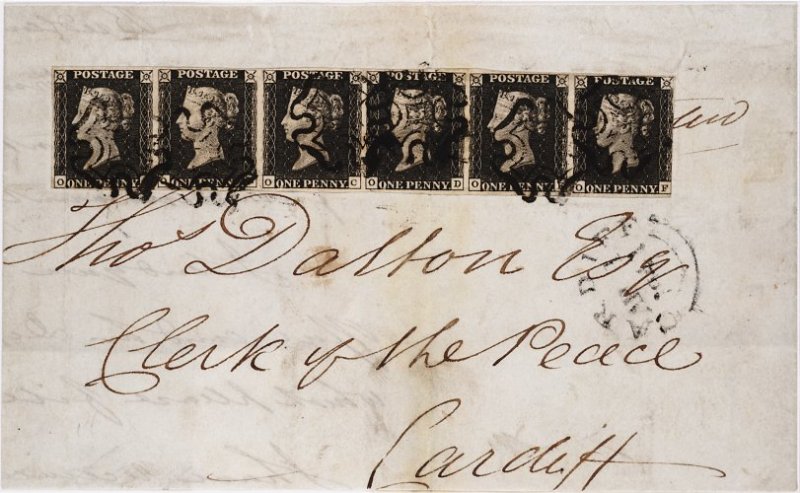 POSTAGE POSTAGE POSTAGE POSTAGE POSTAGE POSTAGE
O ONE PENNY O ONE PENNY O ONE PENNY C O ONE PENNY D O ONE PENNY O ONE PENNY F
Thos Dalton Esq
CARDIFF
Clerk of the Peace
Cardiff